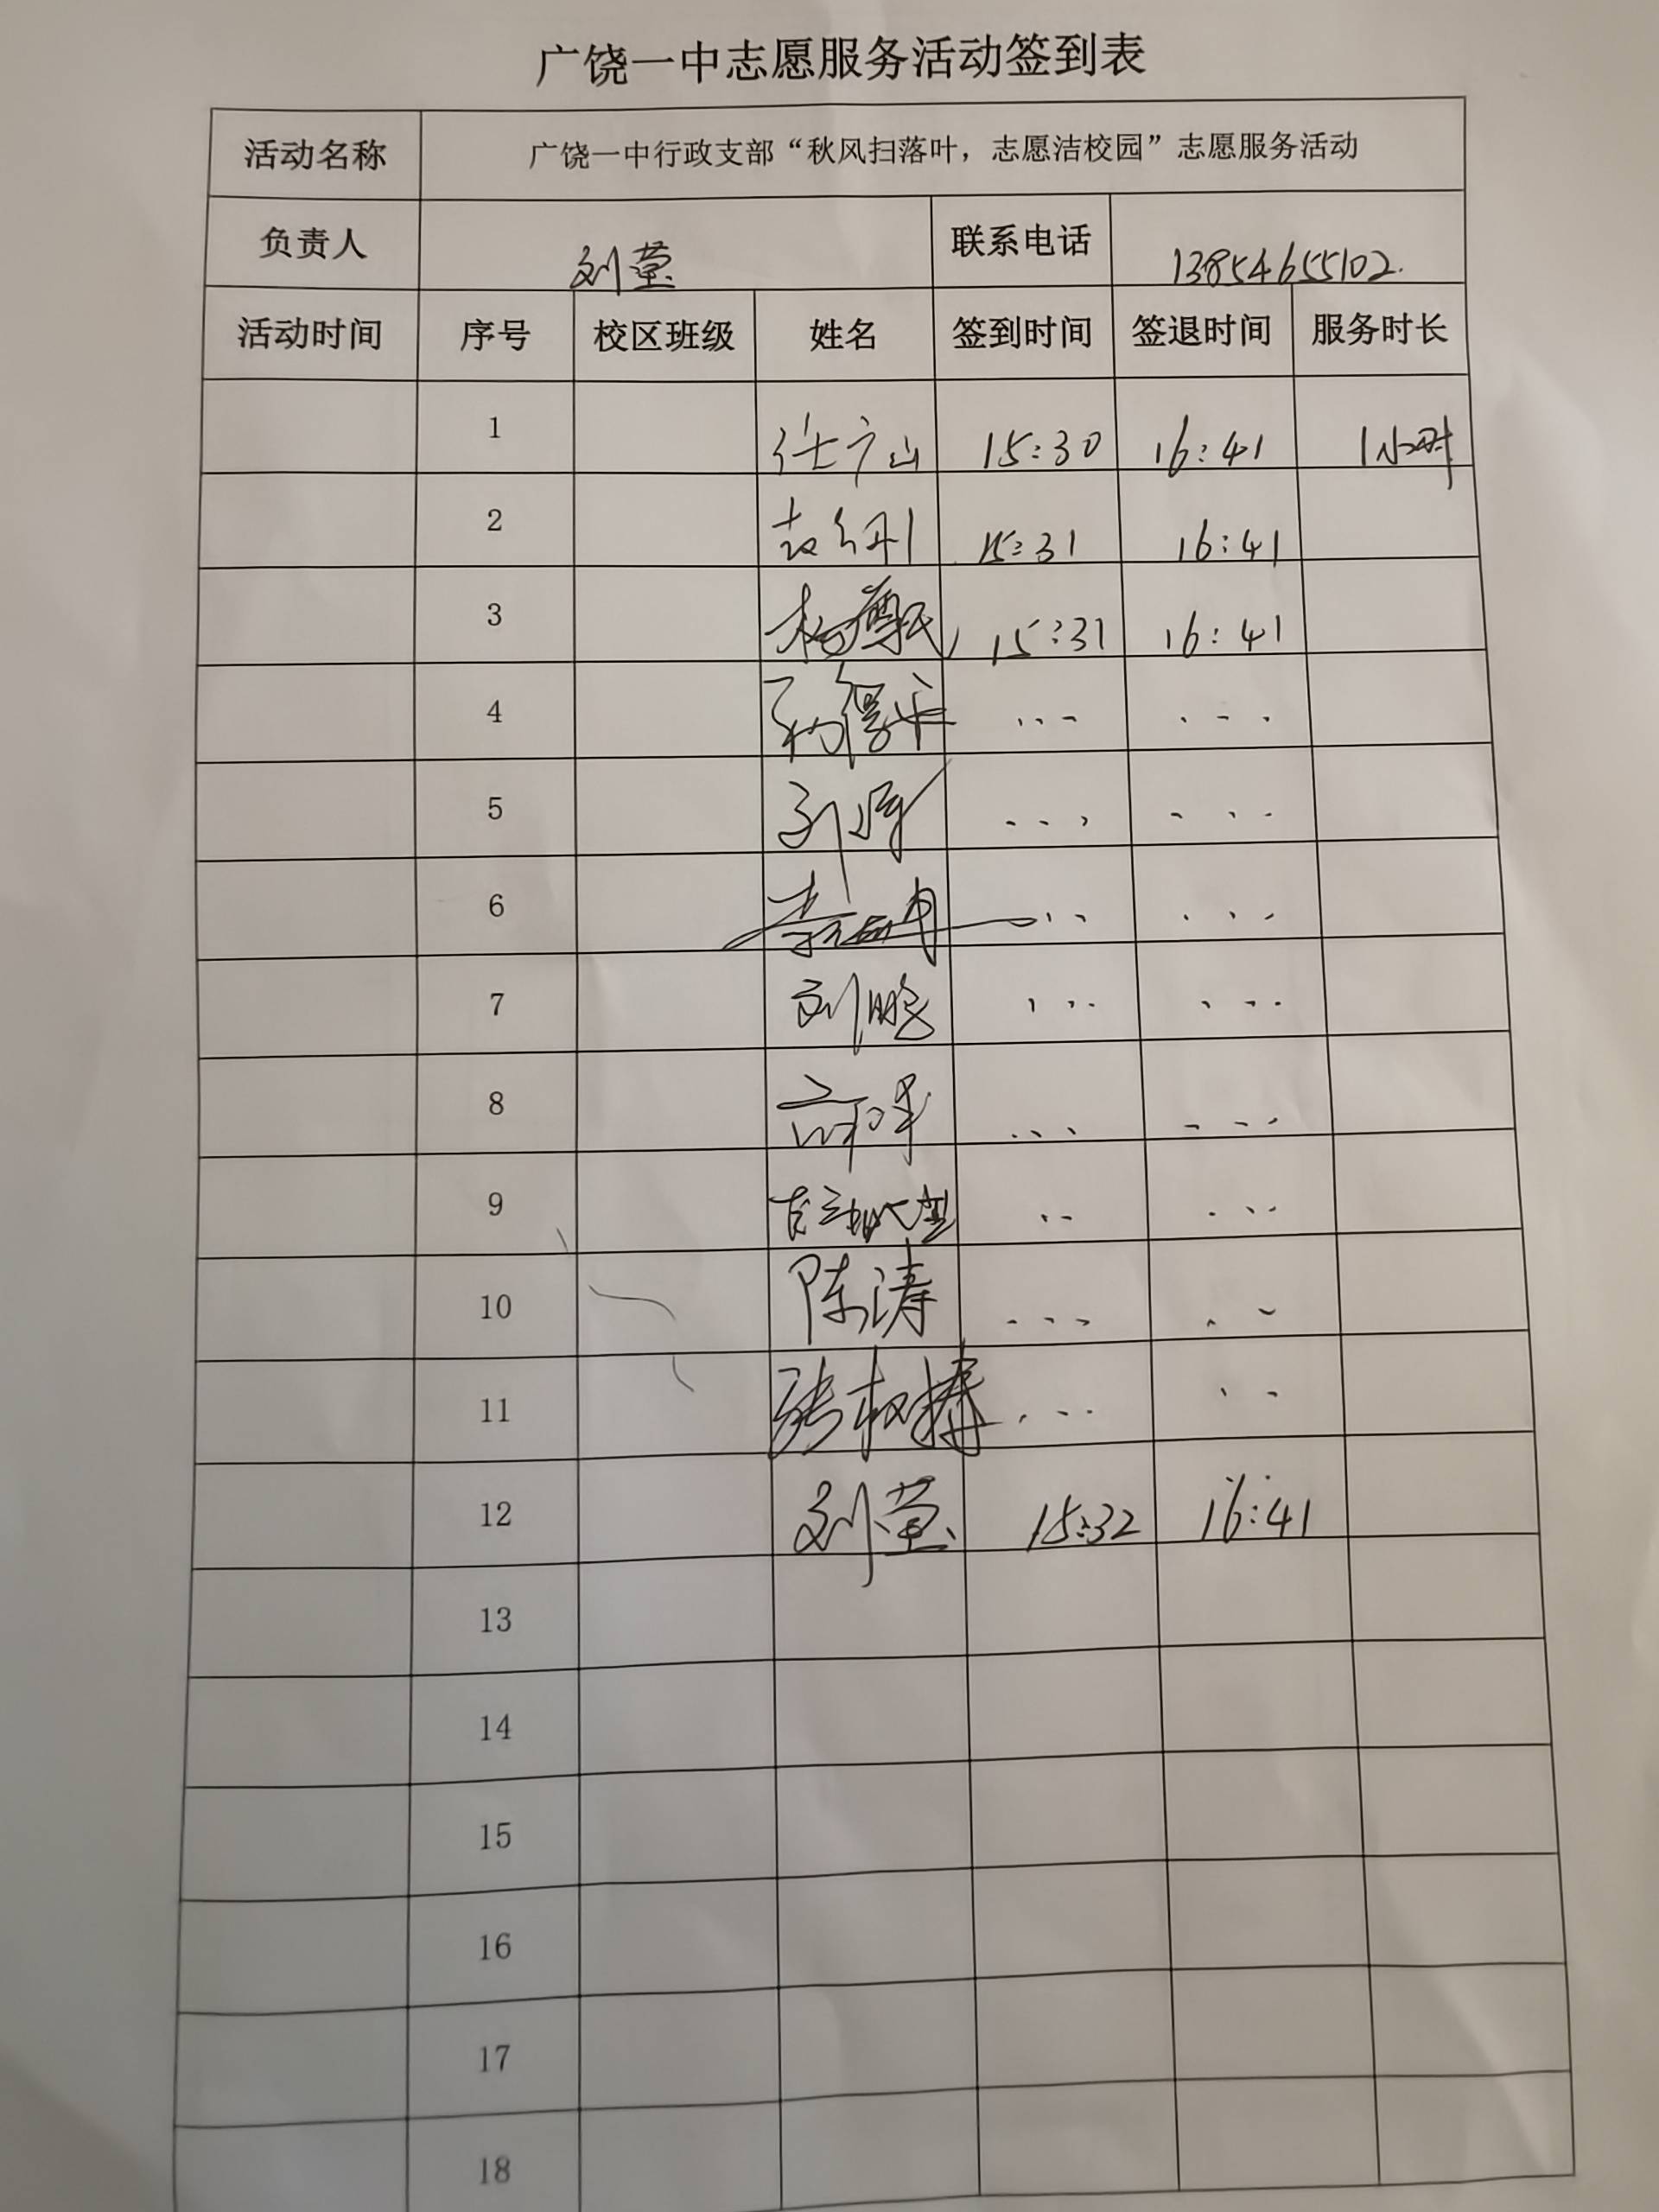 广饶一中志愿服务活动签到表
活动名称 广饶一中行政支部“秋风扫落叶，志愿洁校园”志愿服务活动
负责人 刘莹 联系电话 13854655102.
活动时间 序号 校区班级 姓名 签到时间 签退时间 服务时长
1 任广山 15:30 16:41 1小时
2 15:31 16:41
3 杨尊民 15:31 16:41
4
5
6
7 刘鹏
8
9
10 陈涛
11
12 刘莹 15:32 16:41
13
14
15
16
17
18